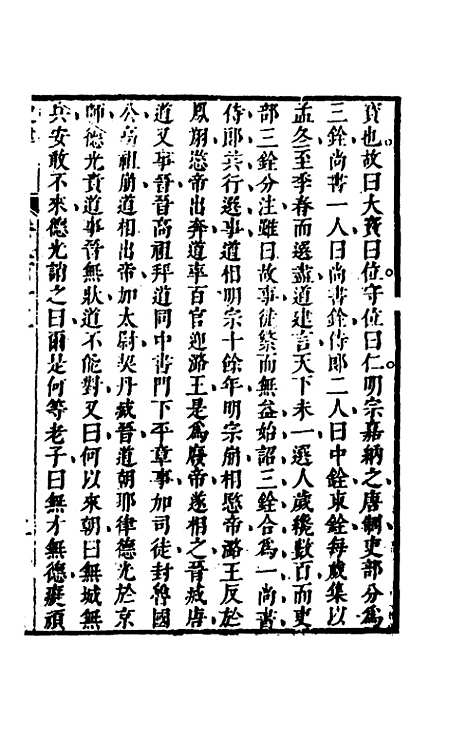 寳也故曰大寳曰位守位曰仁明宗嘉納之唐制吏部分爲
三銓尚書一人曰尚書銓侍郎二人曰中銓東銓每歲集以
孟冬至季春而選盡道建言天下未一選人歲纔數百而吏
部三銓分注雖曰故事徒繁而無益始詔三銓合爲一尚書
侍郎共行選事道相明宗十餘年明宗崩相愍帝潞王反於
鳳翔愍帝出奔道率百官迎潞王是爲廢帝遂相之晉滅唐
道又事晉晉高祖拜道同中書門下平章事加司徒封魯國
公高祖崩道相出帝加太尉契丹滅晉道朝耶律德光於京
師德光責道事晉無狀道不能對又曰何以來朝曰無城無
兵安敢不來德光誚之曰爾是何等老子曰無才無德癡頑